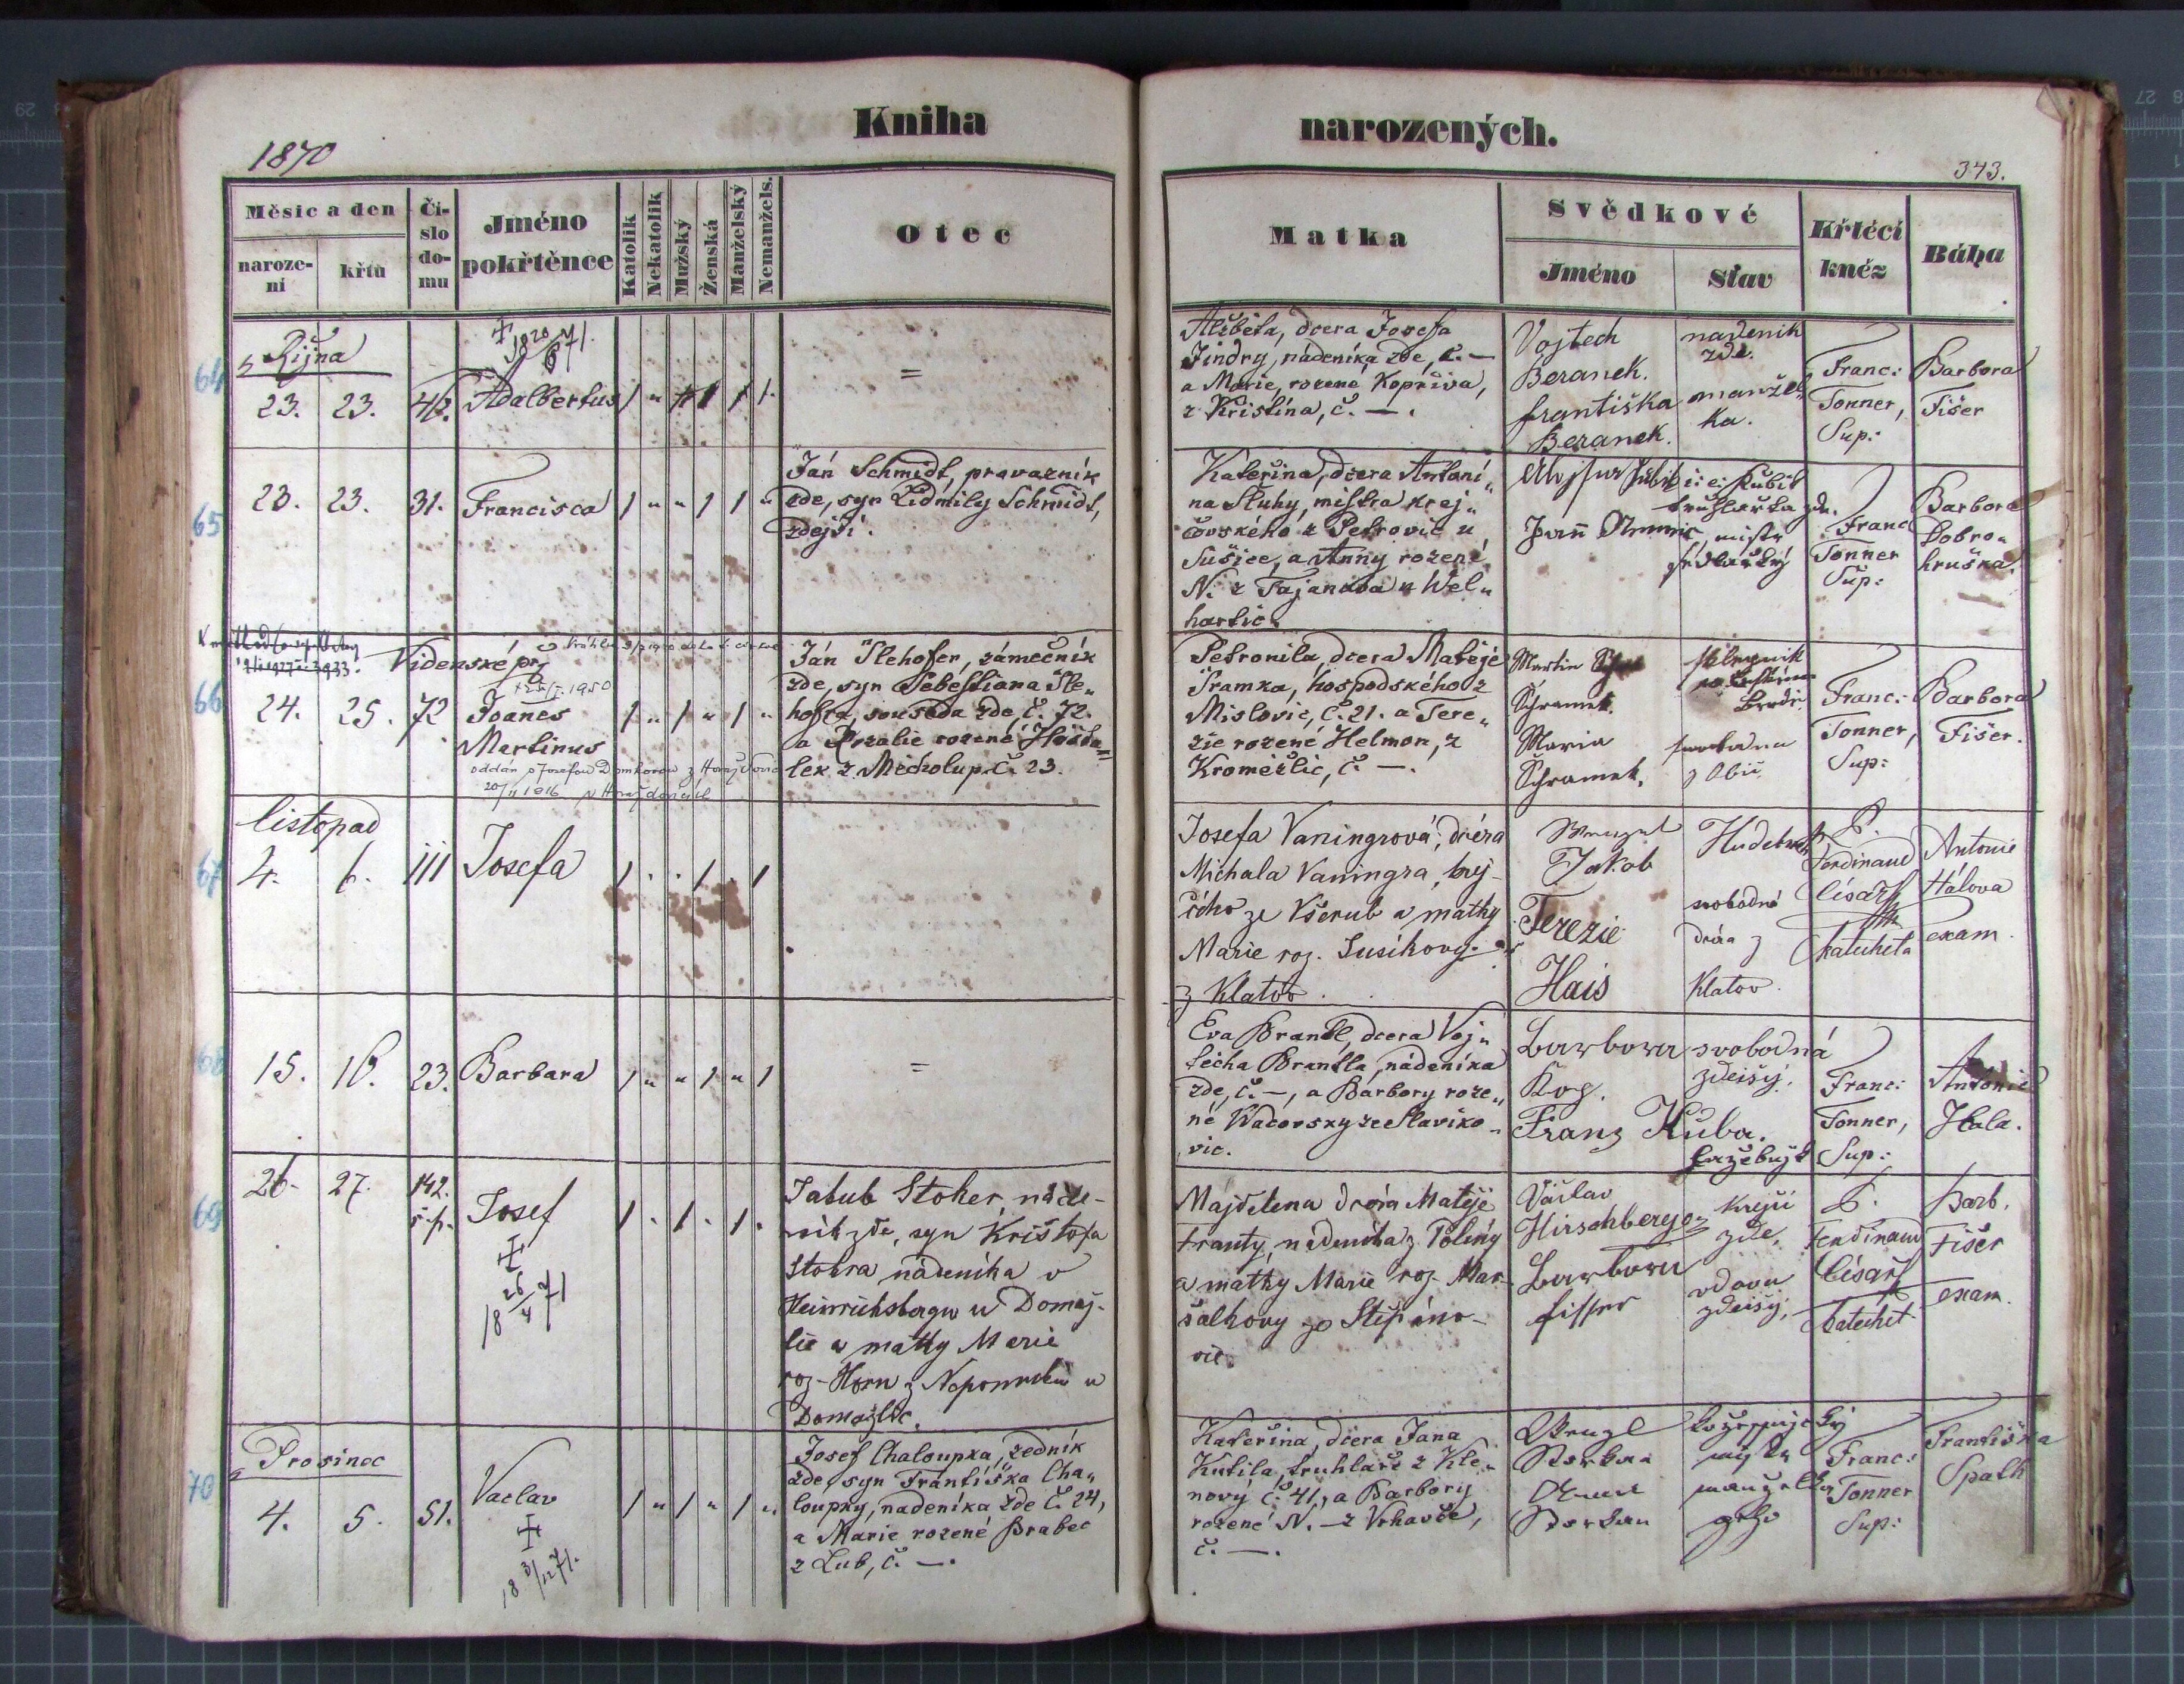 Kniha
narozených.
1870
343.
Měsic a den
naroze-
ni
křtu
Či-
slo
do-
mu
Jméno
pokřtěnce
Katolik
Nekatolik
Mužský
Ženská
Manželský
Nemanžels.
Otec
Matka
Svědkové
Jméno
Stav
Křtěcí
kněz
Bába
64
Října
23. 23. Adalbertus
=
Alžběta, dcera Josefa
Jindry, nádeníka zde, č. —
a Marie, rozené Kopřiva,
z Kristína, č. —.
Vojtech
Beranek.
Františka
Beranek.
nadenik
zde.
manžel
ka.
Franc:
Tonner,
Sup:
Barbora
Fišer
65
23. 23. 31. Francisca
Ján Schmidt, provazník
zde, syn Lidmily Schmidt,
zdejší.
Kateřina, dcera Antoní„
na Sluhy, mistra krej„
čovského z Petrovic u
Sušice, a Anny rozené
N. z Tajanova u Wel„
hartic.
truhlařka zde.
mistr
sedlařký
Franc
Tonner
Sup:
Barbora
Dobro„
hruška.
66
Videnské př
24. 25. 72 Joanes
Martinus
oddán s Josefou z Horažďovic
v Horažďovicích
Ján Slehofer, zámečník
zde, syn Sebestiana Sle„
hofra, souseda zde, č. 72.
a Rozalie rozené
lek z Mecholup č. 23.
Petronila, dcera Matěje
Šramka, hospodského z
Mislovic, č. 21. a Tere„
zie rozené Helmon, z
Kroměžlic, č —.
Martin
Schramek.
Maria
Schramek.
Franc:
Tonner,
Sup:
Barbora
Fišer.
67
listopad
4. 6. 111 Josefa
Josefa Vaningrová, dcéra
Michala Vaningra, krej-
čího ze Všerub a matky
Marie roz. Susikovy
z Klatov.
Wenzel
Jakob
Terezie
Hais
svobodná
dcéra z
Klatov.
P.
Ferdinand
Císař
katecheta
Antonie
Hálova
exam.
68
15. 16. 23. Barbara
=
Eva Brantl, dcera Voj„
těcha Brantla, nádeníka
zde, č. —, a Barbory roze„
né Wacovsky ze Slaviko-
vic.
Barbora
Franz Kuba.
svobodná
zdeišý.
Franc:
Tonner,
Sup:
Antonie
Hala.
69
26. 27. 142. Josef
26/4 1871
Jakub Stoker náde-
ník zde, syn Krištofa
Stokra nádeníka v
Heinrichsbergu u Domaž-
lic a matky Marie
roz. Horn z Nepomuku u
Domažlic.
Majdelena dcéra Matěje
Franty, nádeníka z Poliny
a matky Marie roz. Mar-
šalkovy ze Štěpáno-
vic.
Václav
Hirschberger
Barbora
Fisser
krejči
zde,
vdova
zdeišý,
P.
Ferdinand
Císař
katechet
Barb.
Fišer
exam.
70
Prosinec
4. 5. 51. Vaclav
18 3/12 71.
Josef Chaloupka, zedník
zde, syn Františka Cha„
loupky, nadeníka zde č. 24,
a Marie rozené Brabec
z Lub, č. —.
Kateřina, dcera Jana
Kutila, truhlaře z Kle„
nový č. 41, a Barbory
rozené N. — z Vrhavče,
č. —.
Wenzl
Franc:
Tonner
Sup:
Františka
Spath